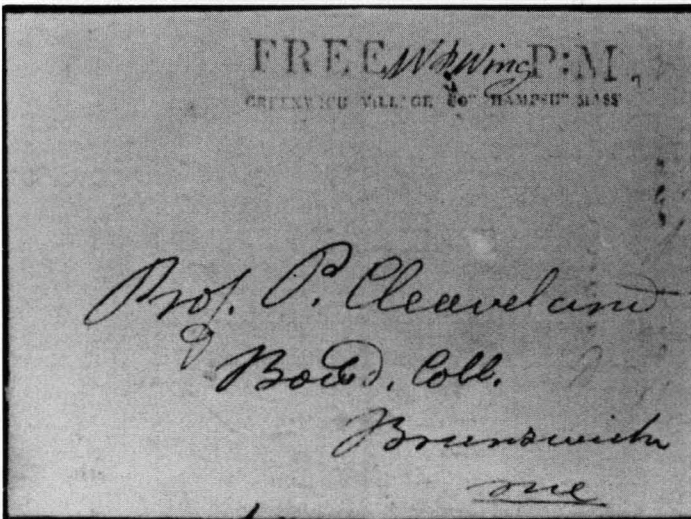 FREE W P Wing P:M.
GREENWICH VILLAGE Co" HAMPSH" MASS
Prof. P. Cleaveland
Bowd. Coll.
Brunswick
Me